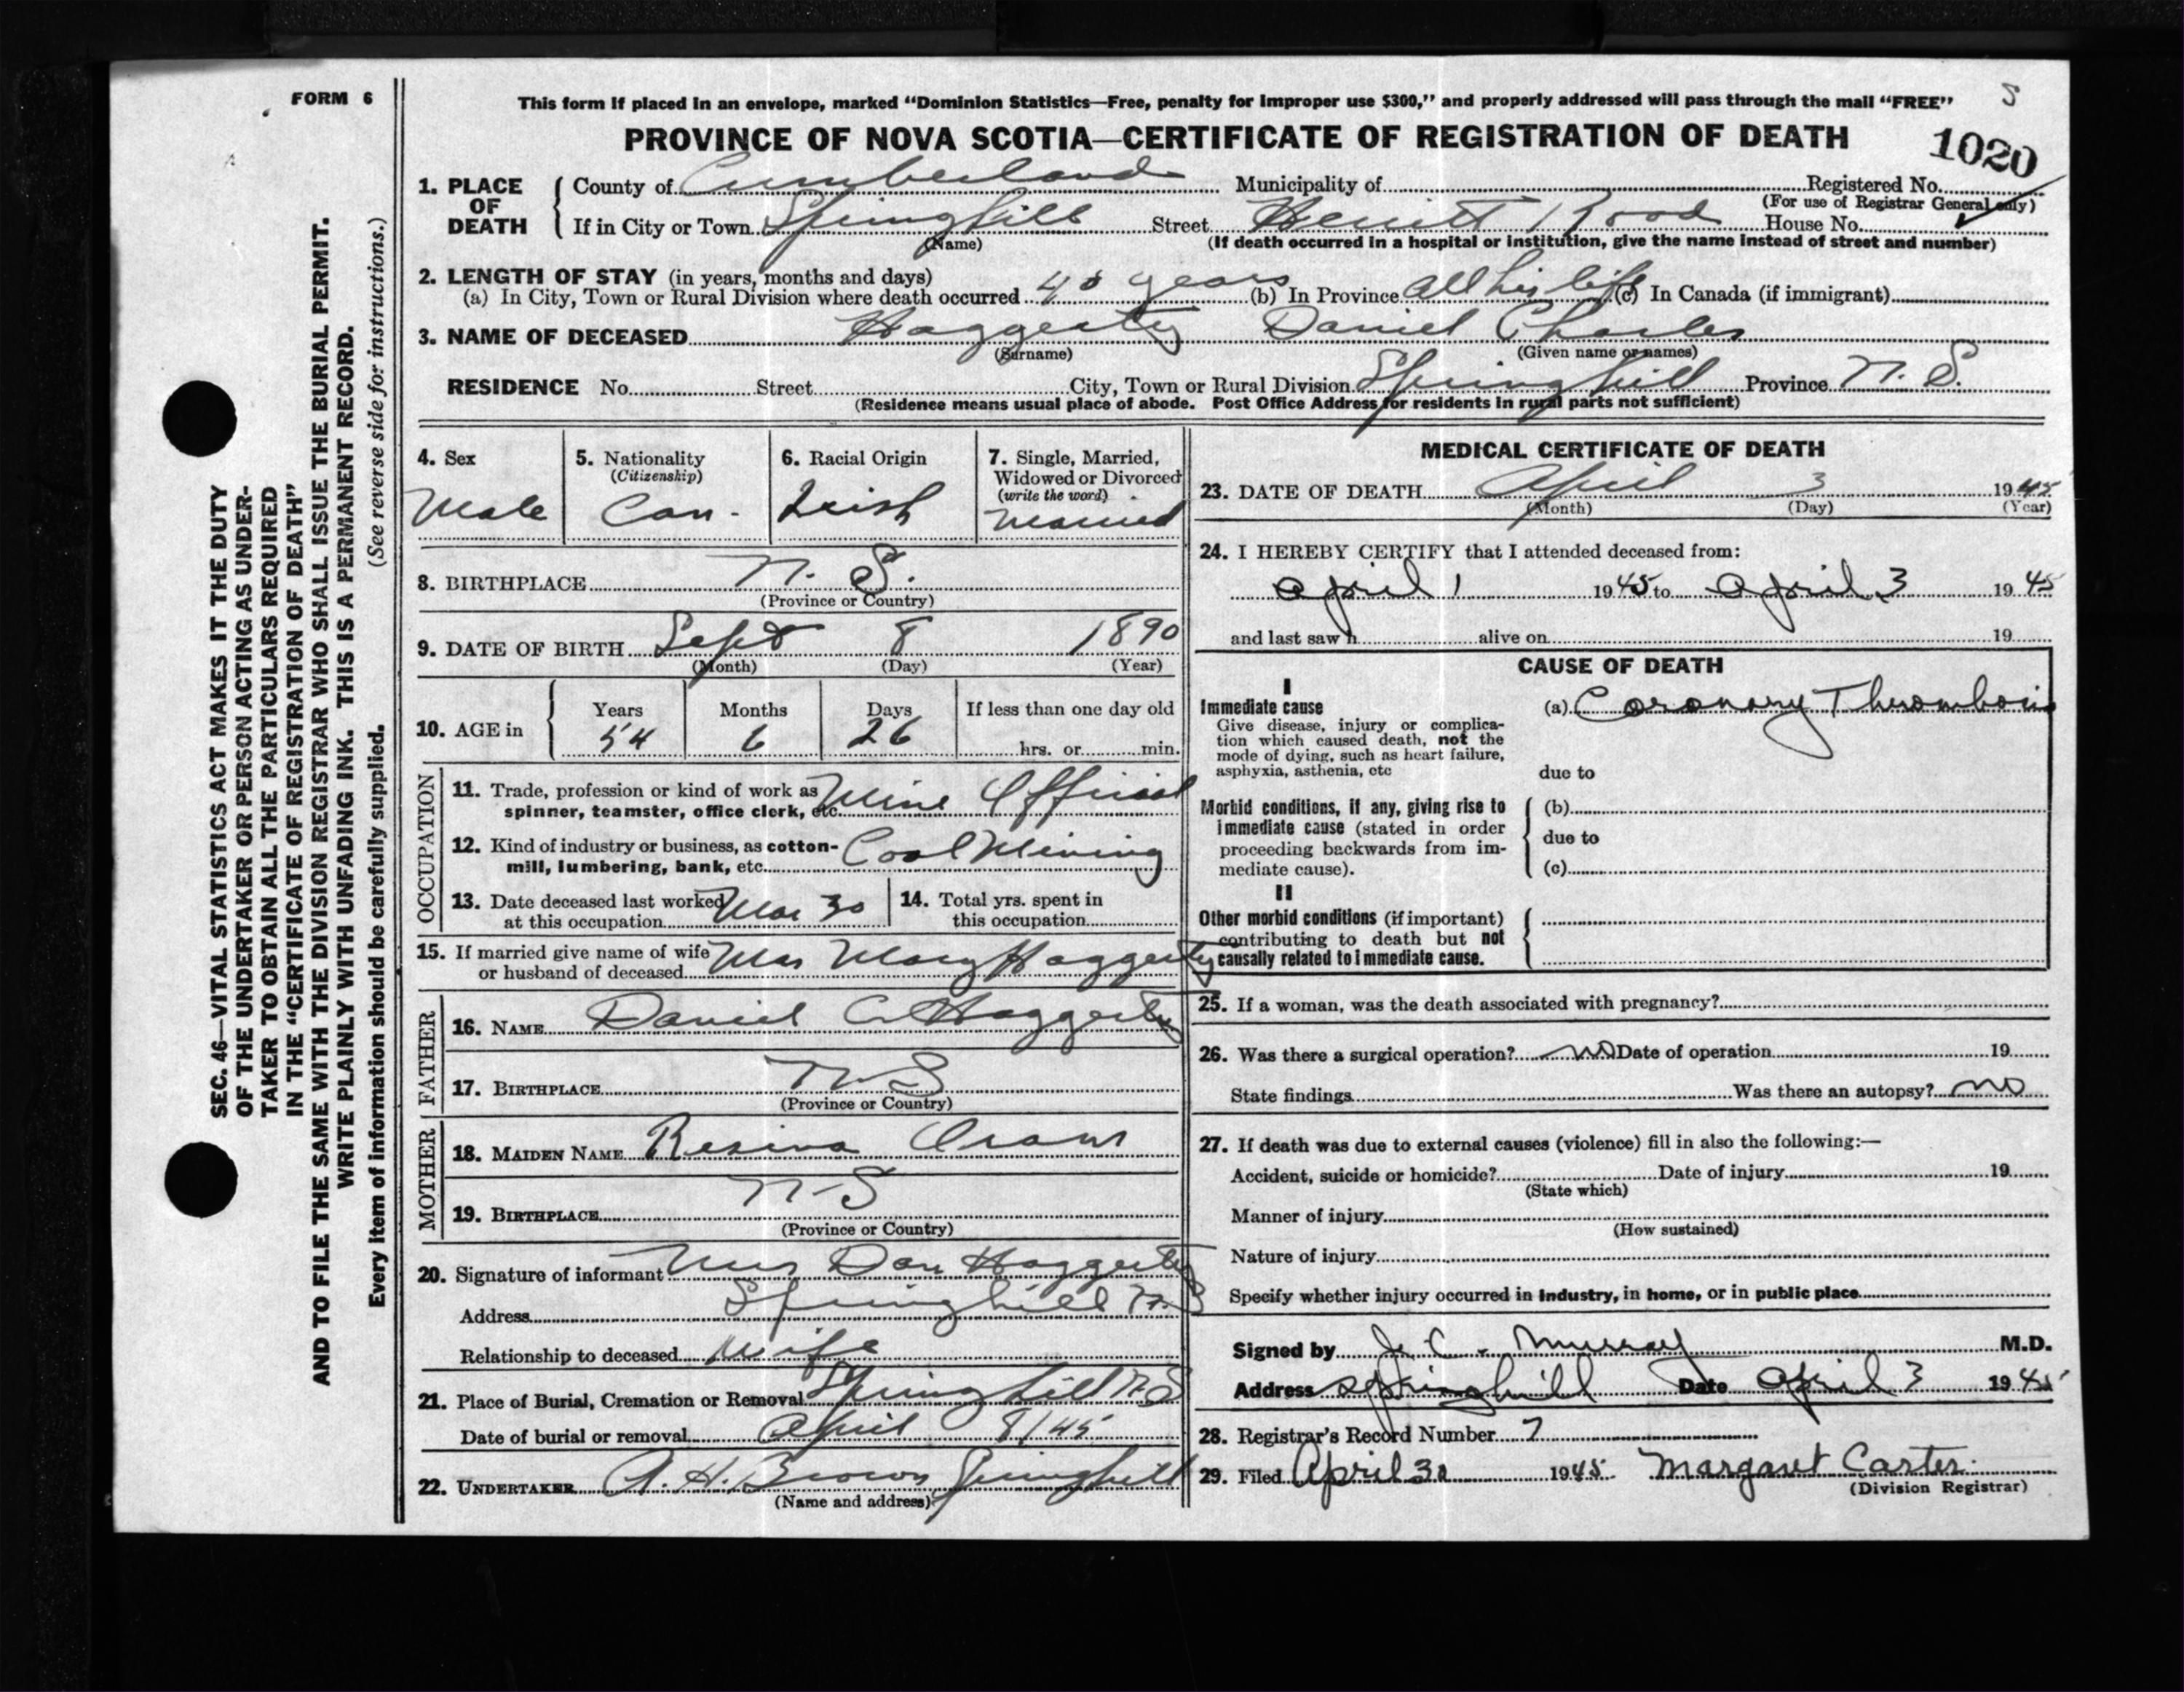 FORM 6
This form if placed in an envelope, marked “Dominion Statistics—Free, penalty for improper use $300,” and properly addressed will pass through the mail “FREE”
PROVINCE OF NOVA SCOTIA—CERTIFICATE OF REGISTRATION OF DEATH
1020
1. PLACE OF DEATH County of Cumberland Municipality of Registered No.
(For use of Registrar General only)
If in City or Town Springhill Street Herritt Road House No.
(Name) (If death occurred in a hospital or institution, give the name instead of street and number)
2. LENGTH OF STAY (in years, months and days)
(a) In City, Town or Rural Division where death occurred 40 years (b) In Province All his life (c) In Canada (if immigrant)
3. NAME OF DECEASED Haggerty Daniel Charles
(Surname) (Given name or names)
RESIDENCE No. Street City, Town or Rural Division Springhill Province N. S.
(Residence means usual place of abode. Post Office Address for residents in rural parts not sufficient)
4. Sex Male
5. Nationality (Citizenship) Can.
6. Racial Origin Irish
7. Single, Married, Widowed or Divorced (write the word) Married
8. BIRTHPLACE N. S.
(Province or Country)
9. DATE OF BIRTH Sept 8 1890
(Month) (Day) (Year)
10. AGE in Years Months Days If less than one day old
54 6 26 hrs. or min.
OCCUPATION
11. Trade, profession or kind of work as Mine Official
spinner, teamster, office clerk, etc.
12. Kind of industry or business, as cotton- Coal Mining
mill, lumbering, bank, etc.
13. Date deceased last worked at this occupation Mar 30
14. Total yrs. spent in this occupation
15. If married give name of wife or husband of deceased Mrs Mary Haggerty
FATHER
16. NAME Daniel C Haggerty
17. BIRTHPLACE N S
(Province or Country)
MOTHER
18. MAIDEN NAME
19. BIRTHPLACE N-S
(Province or Country)
20. Signature of informant Mrs Dan Haggerty
Address Springhill N.S
Relationship to deceased Wife
21. Place of Burial, Cremation or Removal Springhill N.S
Date of burial or removal April 8/45
22. UNDERTAKER A. H. Brown Springhill
(Name and address)
MEDICAL CERTIFICATE OF DEATH
23. DATE OF DEATH April 3 1945
(Month) (Day) (Year)
24. I HEREBY CERTIFY that I attended deceased from:
april 1 1945 to april 3 1945
and last saw h alive on 19
CAUSE OF DEATH
I
Immediate cause (a) Coronary Thrombosis
Give disease, injury or complica-
tion which caused death, not the
mode of dying, such as heart failure,
asphyxia, asthenia, etc due to
Morbid conditions, if any, giving rise to (b)
immediate cause (stated in order due to
proceeding backwards from im-
mediate cause). (c)
II
Other morbid conditions (if important)
contributing to death but not
causally related to immediate cause.
25. If a woman, was the death associated with pregnancy?
26. Was there a surgical operation? no Date of operation 19
State findings Was there an autopsy? no
27. If death was due to external causes (violence) fill in also the following:—
Accident, suicide or homicide? Date of injury 19
(State which)
Manner of injury
(How sustained)
Nature of injury
Specify whether injury occurred in industry, in home, or in public place
Signed by J. C. Murray M.D.
Address Springhill Date april 3 1945
28. Registrar's Record Number 7
29. Filed April 30 1945 Margaret Carter.
(Division Registrar)
SEC. 46—VITAL STATISTICS ACT MAKES IT THE DUTY
OF THE UNDERTAKER OR PERSON ACTING AS UNDER-
TAKER TO OBTAIN ALL THE PARTICULARS REQUIRED
IN THE “CERTIFICATE OF REGISTRATION OF DEATH”
AND TO FILE THE SAME WITH THE DIVISION REGISTRAR WHO SHALL ISSUE THE BURIAL PERMIT.
WRITE PLAINLY WITH UNFADING INK. THIS IS A PERMANENT RECORD.
Every item of information should be carefully supplied. (See reverse side for instructions.)